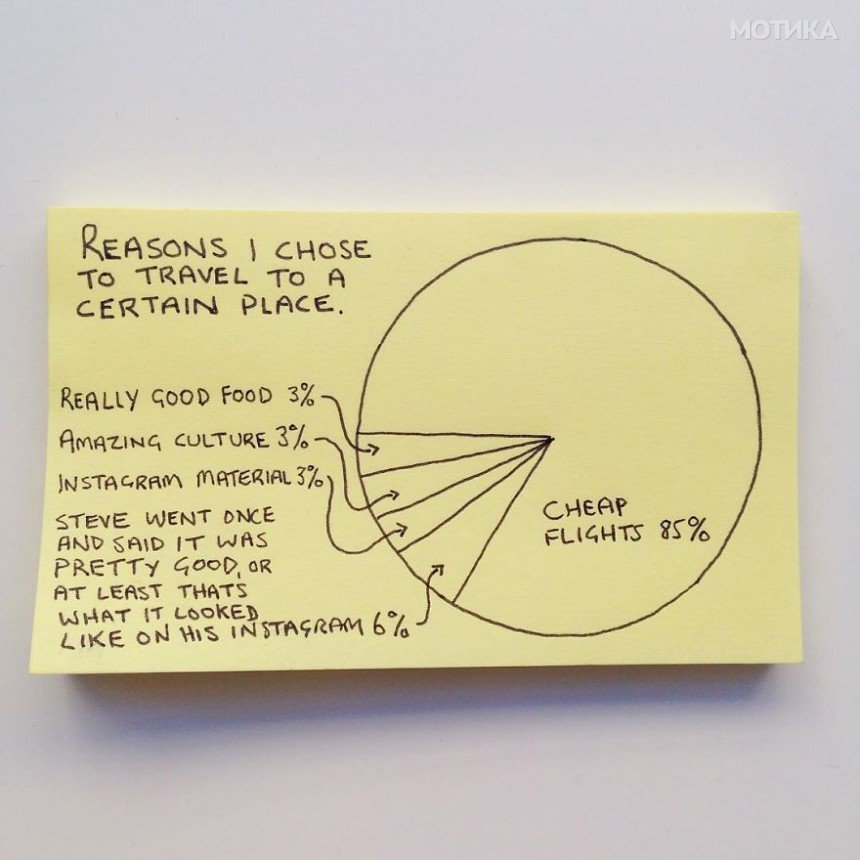 МОТИКА
REASONS I CHOSE
TO TRAVEL TO A
CERTAIN PLACE.
REALLY GOOD FOOD 3%
AMAZING CULTURE 3%
INSTAGRAM MATERIAL 3%
STEVE WENT ONCE
AND SAID IT WAS
PRETTY GOOD, OR
AT LEAST THATS
WHAT IT LOOKED
LIKE ON HIS INSTAGRAM 6%
CHEAP
FLIGHTS 85%